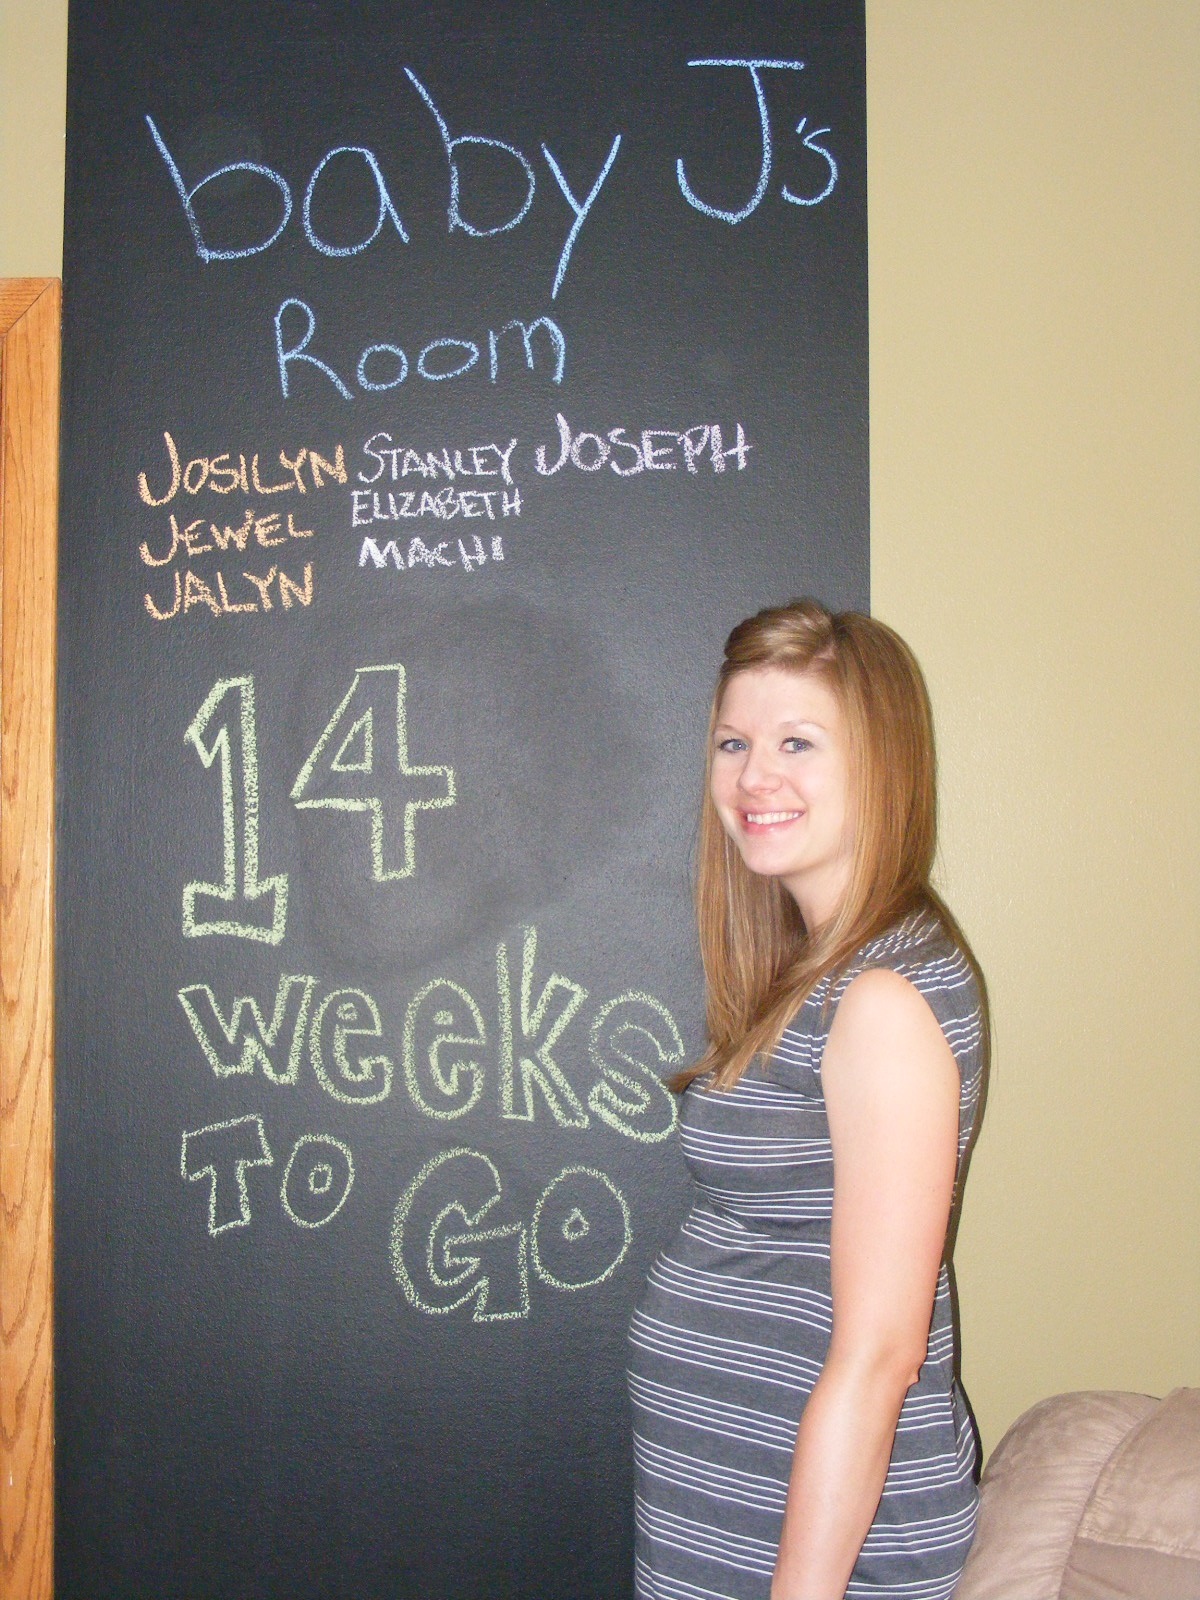 baby J's
Room
JOSILYN STANLEY JOSEPH
JEWEL ELIZABETH
JALYN MACHI
14
weeks
TO GO